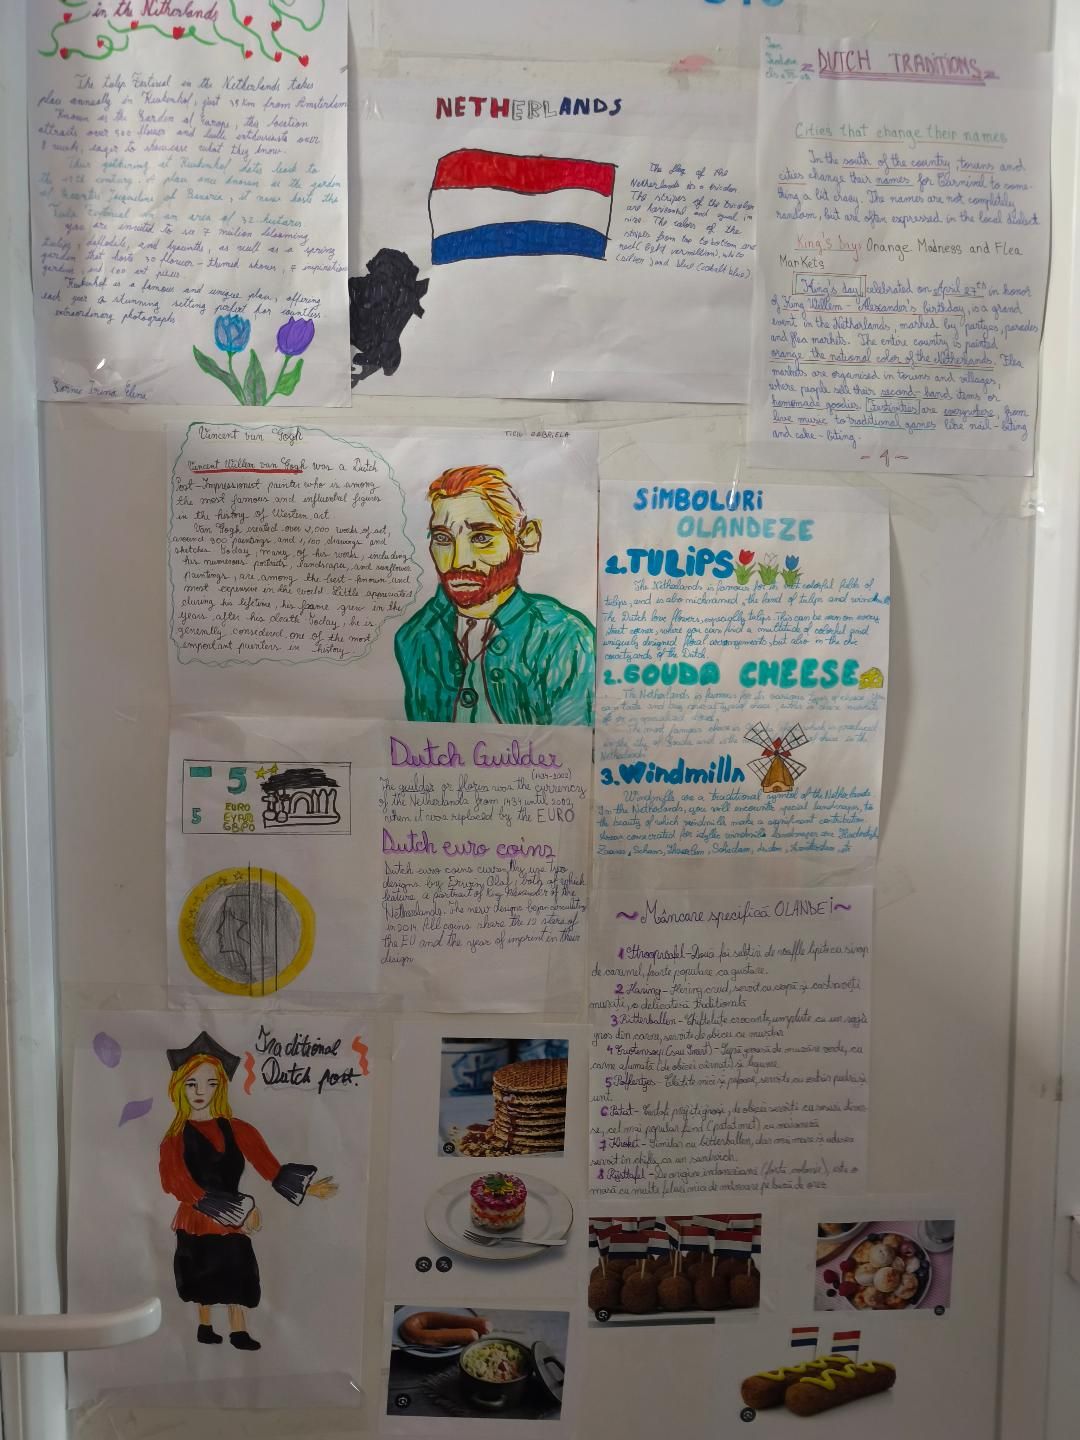 in the Netherlands
The tulip Festival in the Netherlands takes
place annually in Keukenhof, just 35 km from Amsterdam
Known as the Garden of Europe, this location
attracts over 500 flower and bulb enthusiasts over
8 weeks, eager to showcase what they know.
This gathering at Keukenhof dates back to
the 15th century. A place once known as the garden
of Jacqueline of Bavaria, it now hosts the
Tulip Festival on an area of 32 hectares
You are invited to see 7 million blooming
tulips, daffodils, and hyacinths, as well as a spring
garden that hosts 30 flower-themed shows, 7 inspirational
gardens, and 100 art pieces.
Keukenhof is a famous and unique place, offering
each year a stunning setting perfect for countless
extraordinary photographs
Irina Elina
NETHERLANDS
The flag of the
Netherlands is a tricolor.
The stripes of the tricolor
are horizontal and equal in
size. The colors of the
stripes from top to bottom are
red (light vermilion), white
(silver) and blue (cobalt blue).
DUTCH TRADITIONS
Cities that change their names
In the south of the country, towns and
cities change their names for Carnival to some-
thing a bit crazy. The names are not completely
random, but are often expressed in the local dialect.
King's Day: Orange Madness and Flea
Markets
King's day celebrated on april 27th in honor
of King Willem-Alexander's birthday, is a grand
event in the Netherlands, marked by partyes, parades
and flea markets. The entire country is painted
orange the national color of the Netherlands. Flea
markets are organised in towns and villages,
where people sell their second-hand items or
homemade goodies. Festivities are everywhere, from
live music to traditional games like nail-biting
and cake-biting.
- 4 -
Vincent van Gogh
GABRIELA
Vincent Willem van Gogh was a Dutch
Post-Impressionist painter who is among
the most famous and influential figures
in the history of Western art
Van Gogh created over 2,000 works of art,
around 900 paintings and 1,100 drawings and
sketches. Today, many of his works, including
his numerous portraits, landscapes, and sunflower
paintings, are among the best-known and
most expensive in the world. Little appreciated
during his lifetime, his fame grew in the
years after his death. Today, he is
generally considered one of the most
important painters in history.
SiMBOLURi
OLANDEZE
1. TULIPS
The Netherlands is famous for its vast colorful fields of
tulips, and is also nicknamed, the land of tulips and windmills
The Dutch love flowers, especially tulips. This can be seen on every
street corner, where you can find a multitude of colorful and
uniquely designed floral arrangements, but also in the chic
courtyards of the Dutch.
2. GOUDA CHEESE
The Netherlands is famous for its various types of cheese. You
can taste and buy several types of cheese, either in cheese markets
or in specialized stores.
The most famous cheese is Gouda, which is produced
in the city of Gouda and is the cheese in the
Netherlands
3. Windmills
Windmills are a traditional symbol of the Netherlands
In the Netherlands, you will encounter special landscapes, to
the beauty of which windmills make a significant contribution.
Areas consecrated for idyllic windmill landscapes are Kinderdijk,
Zaanse, Schans, Haarlem, Schiedam, Leiden, Amsterdam, etc
5
5
EURO
EYPΩ
Dutch Guilder
(1434-2002)
The guilder or florin was the currency
of the Netherlands from 1434 until 2002,
when it was replaced by the EURO
Dutch euro coins
Dutch euro coins currently use two
designs by Erwin Olaf, both of which
feature a portrait of King Alexander of the
Netherlands. The new designs began circulating
in 2014. All coins share the 12 stars of
the EU and the year of imprint in their
design
~ Mâncare specifică OLANDEi ~
1 Stroopwafel - Două foi subțiri de waffle lipite cu sirop
de caramel, foarte populare ca gustare.
2 Haring - Hering crud, servit cu ceapă și castraveți
murați, o delicatesă tradițională
3 Bitterballen - Chiftelute crocante, umplute cu un ragù
gros din carne, servite de obicei cu muștar
4 (sau Snert) - Supă groasă de mazăre verde, cu
carne afumată (de obicei cârnați) și legume
5 Poffertjes - Clătite mici și pufoase, servite cu zahăr pudră și
unt.
6 Patat - Cartofi prăjiți groși, de obicei serviți cu sosuri diver-
se, cel mai popular fiind (patat met) cu maioneză
7 Kroket - Similar cu bitterballen, dar mai mare și adesea
servit în chiflă, ca un sandwich.
8 Rijsttafel - De origine indoneziană (fosta colonie), este o
masă cu multe feluri mici de mâncare pe bază de orez
Traditional
Dutch port.